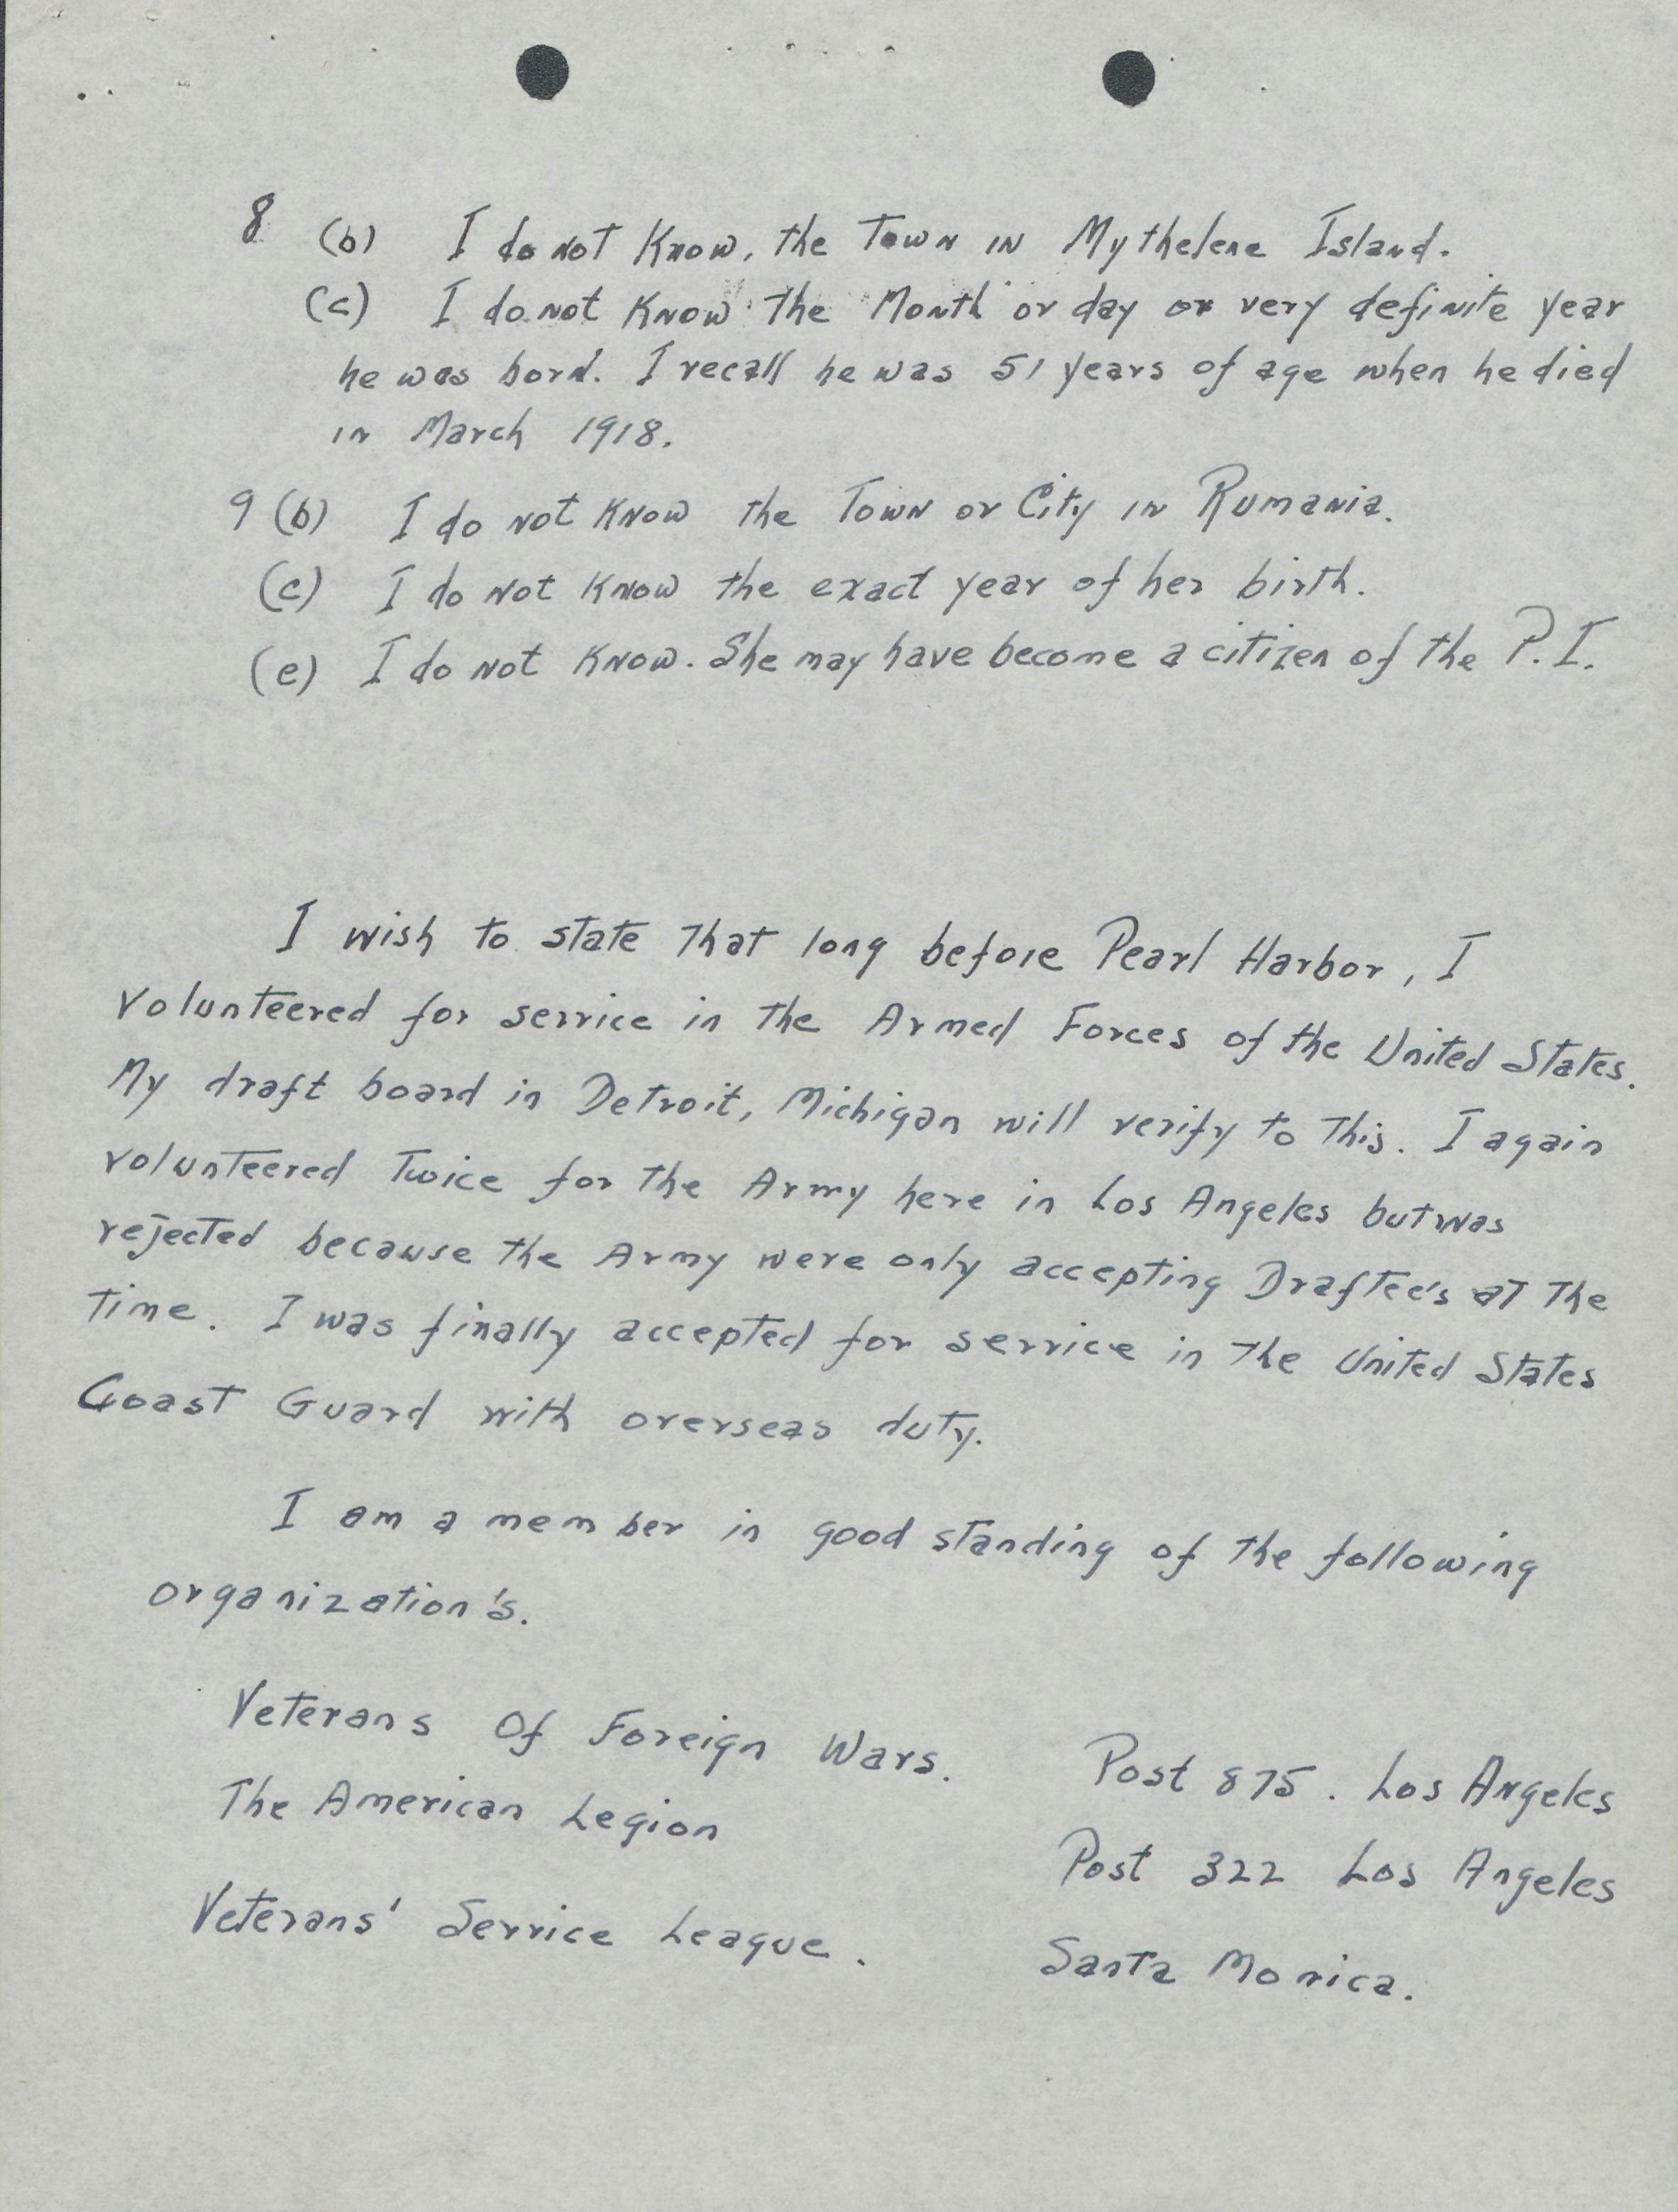 8 (b) I do not Know, the Town in Mythelene Island.
(c) I do not Know the Month or day or very definite year
he was born. I recall he was 51 years of age when he died
in March 1918.
9 (b) I do not Know the Town or City in Rumania.
(c) I do not Know the exact year of her birth.
(e) I do not Know. She may have become a citizen of the P.I.
I wish to state that long before Pearl Harbor, I
volunteered for service in the Armed Forces of the United States.
My draft board in Detroit, Michigan will verify to this. I again
volunteered twice for the Army here in Los Angeles but was
rejected because the Army were only accepting Draftee's at the
time. I was finally accepted for service in the United States
Coast Guard with overseas duty.
I am a member in good standing of the following
organization's.
Veterans Of Foreign Wars. Post 875. Los Angeles
The American Legion Post 322 Los Angeles
Veterans' Service League. Santa Monica.